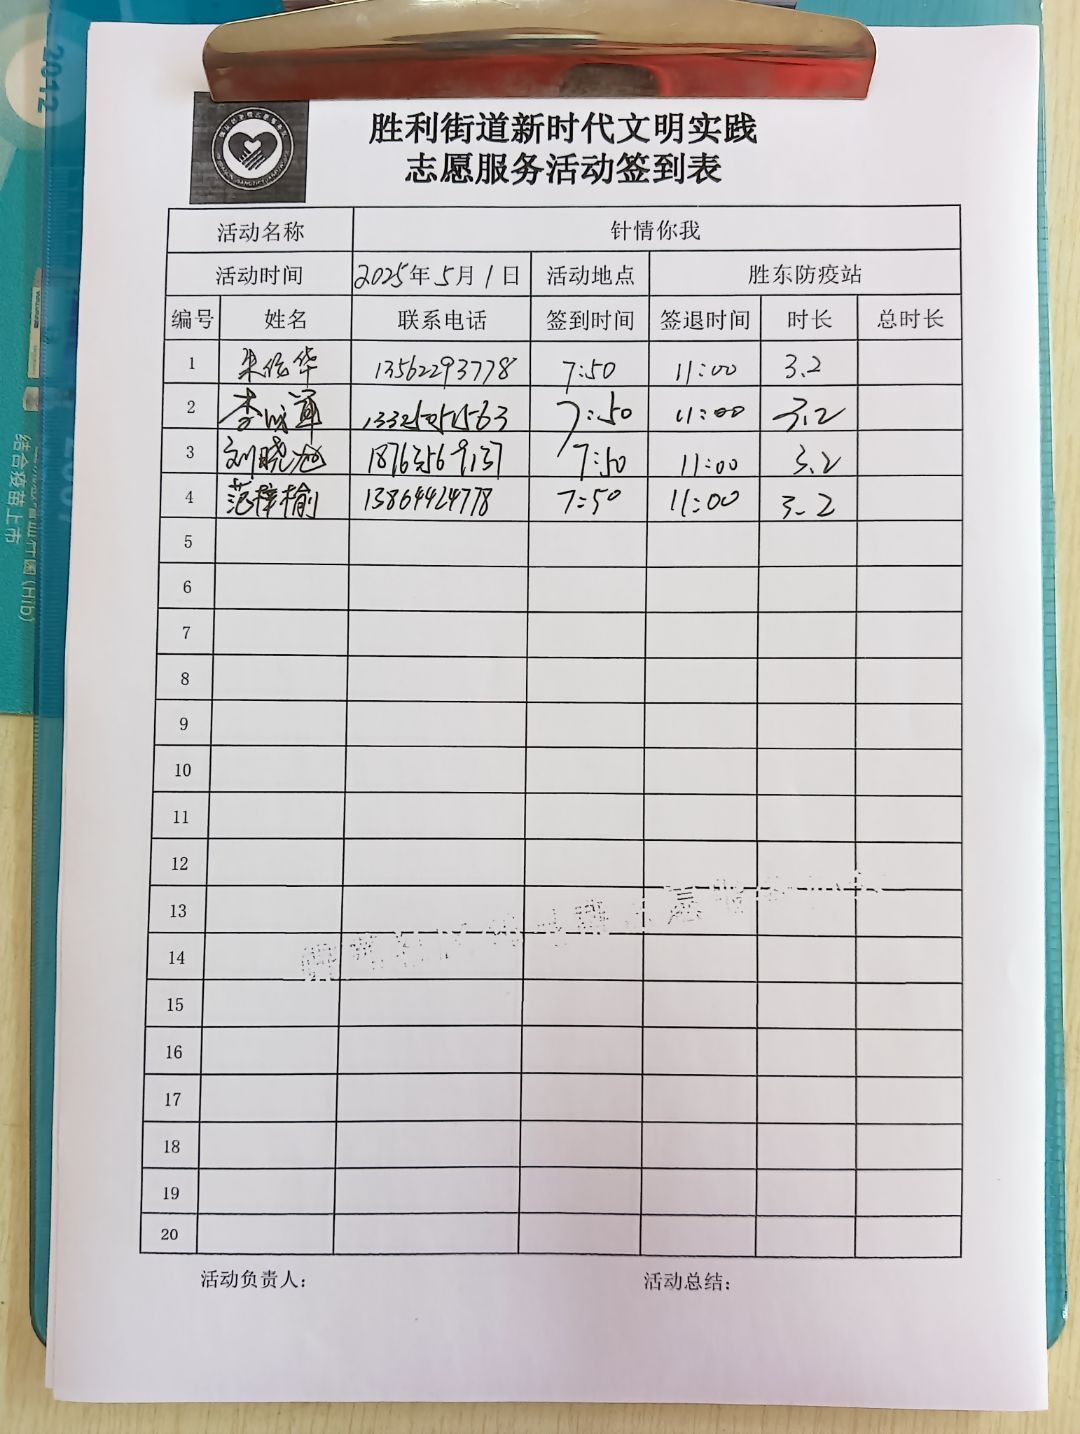 2012
结合疫苗上市
(Hib)
胜利街道新时代文明实践
志愿服务活动签到表
活动名称 针情你我
活动时间 2025年5月1日 活动地点 胜东防疫站
编号 姓名 联系电话 签到时间 签退时间 时长 总时长
1 13562293778 7:50 11:00 3.2
2 李成军 7:50 11:00 3.2
3 刘晓旭 18763569137 7:50 11:00 3.2
4 范梓榆 13864424778 7:50 11:00 3.2
5
6
7
8
9
10
11
12
13
14
15
16
17
18
19
20
活动负责人: 活动总结: